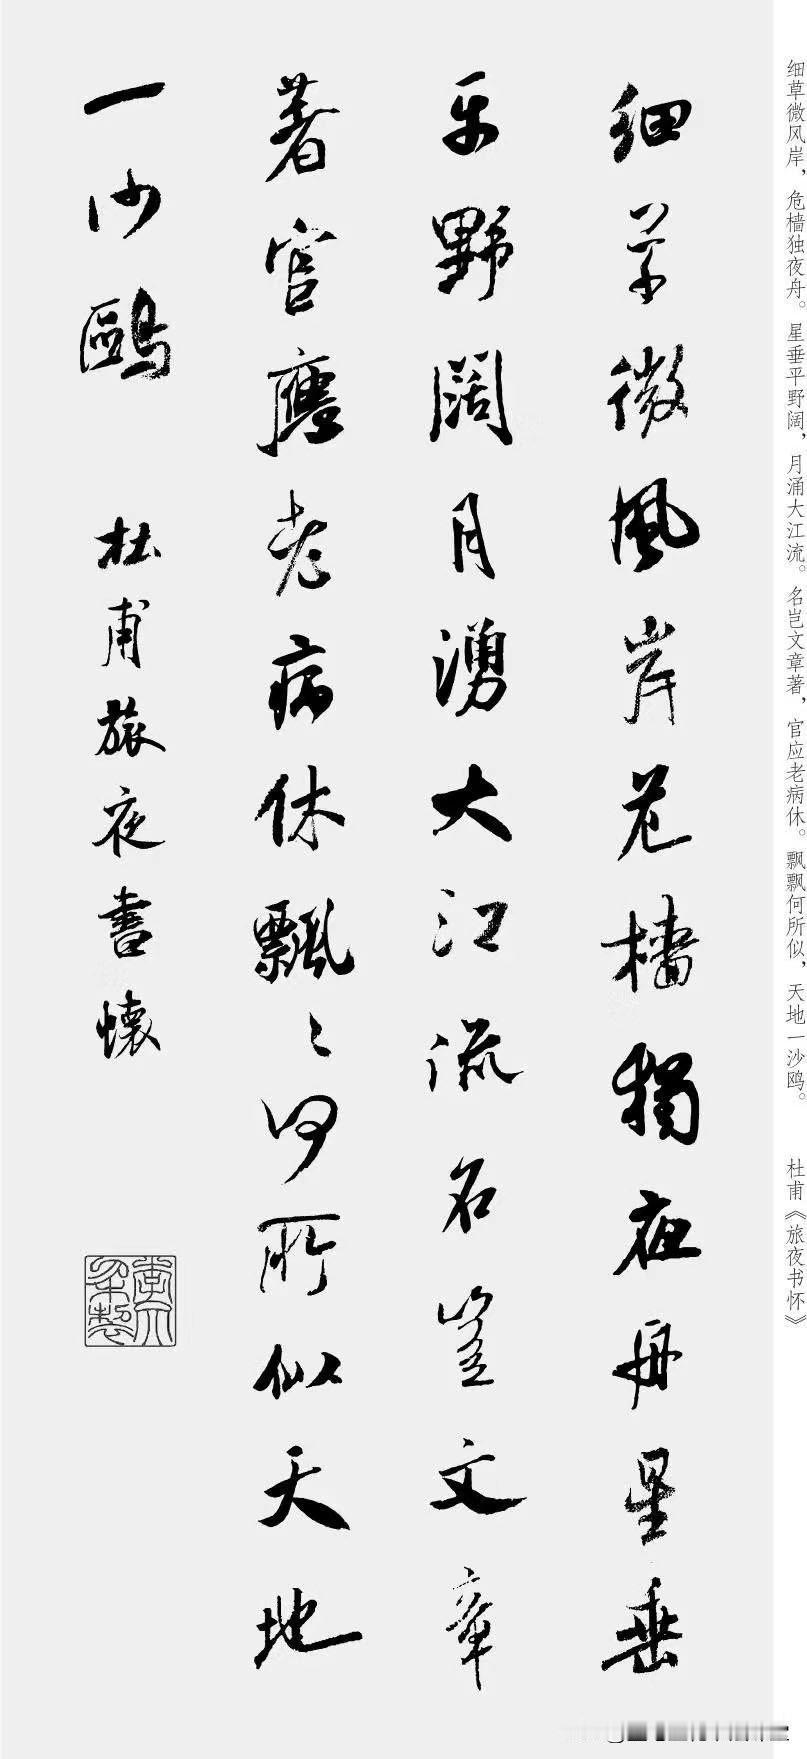 细草微风岸，危檣独夜舟。星垂平野阔，月涌大江流。名岂文章著，官应老病休。飘飘何所似，天地一沙鸥。 杜甫《旅夜书怀》
细草微風岸危檣獨夜舟星垂
平野闊月湧大江流名豈文章
著官應老病休飄〻何所似天地
一沙鷗
杜甫旅夜書懷